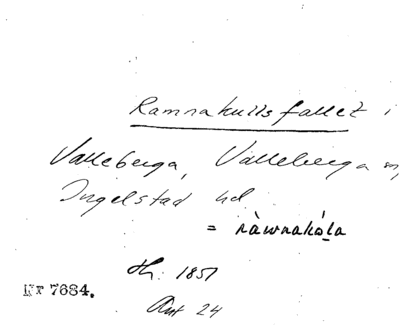 Ramnakullsfallet i
Valleberga, Valleberga sn,
Ingelstad hd
= ràwnakó̠la
Hr: 1851
Ant 24
Nr 7684.